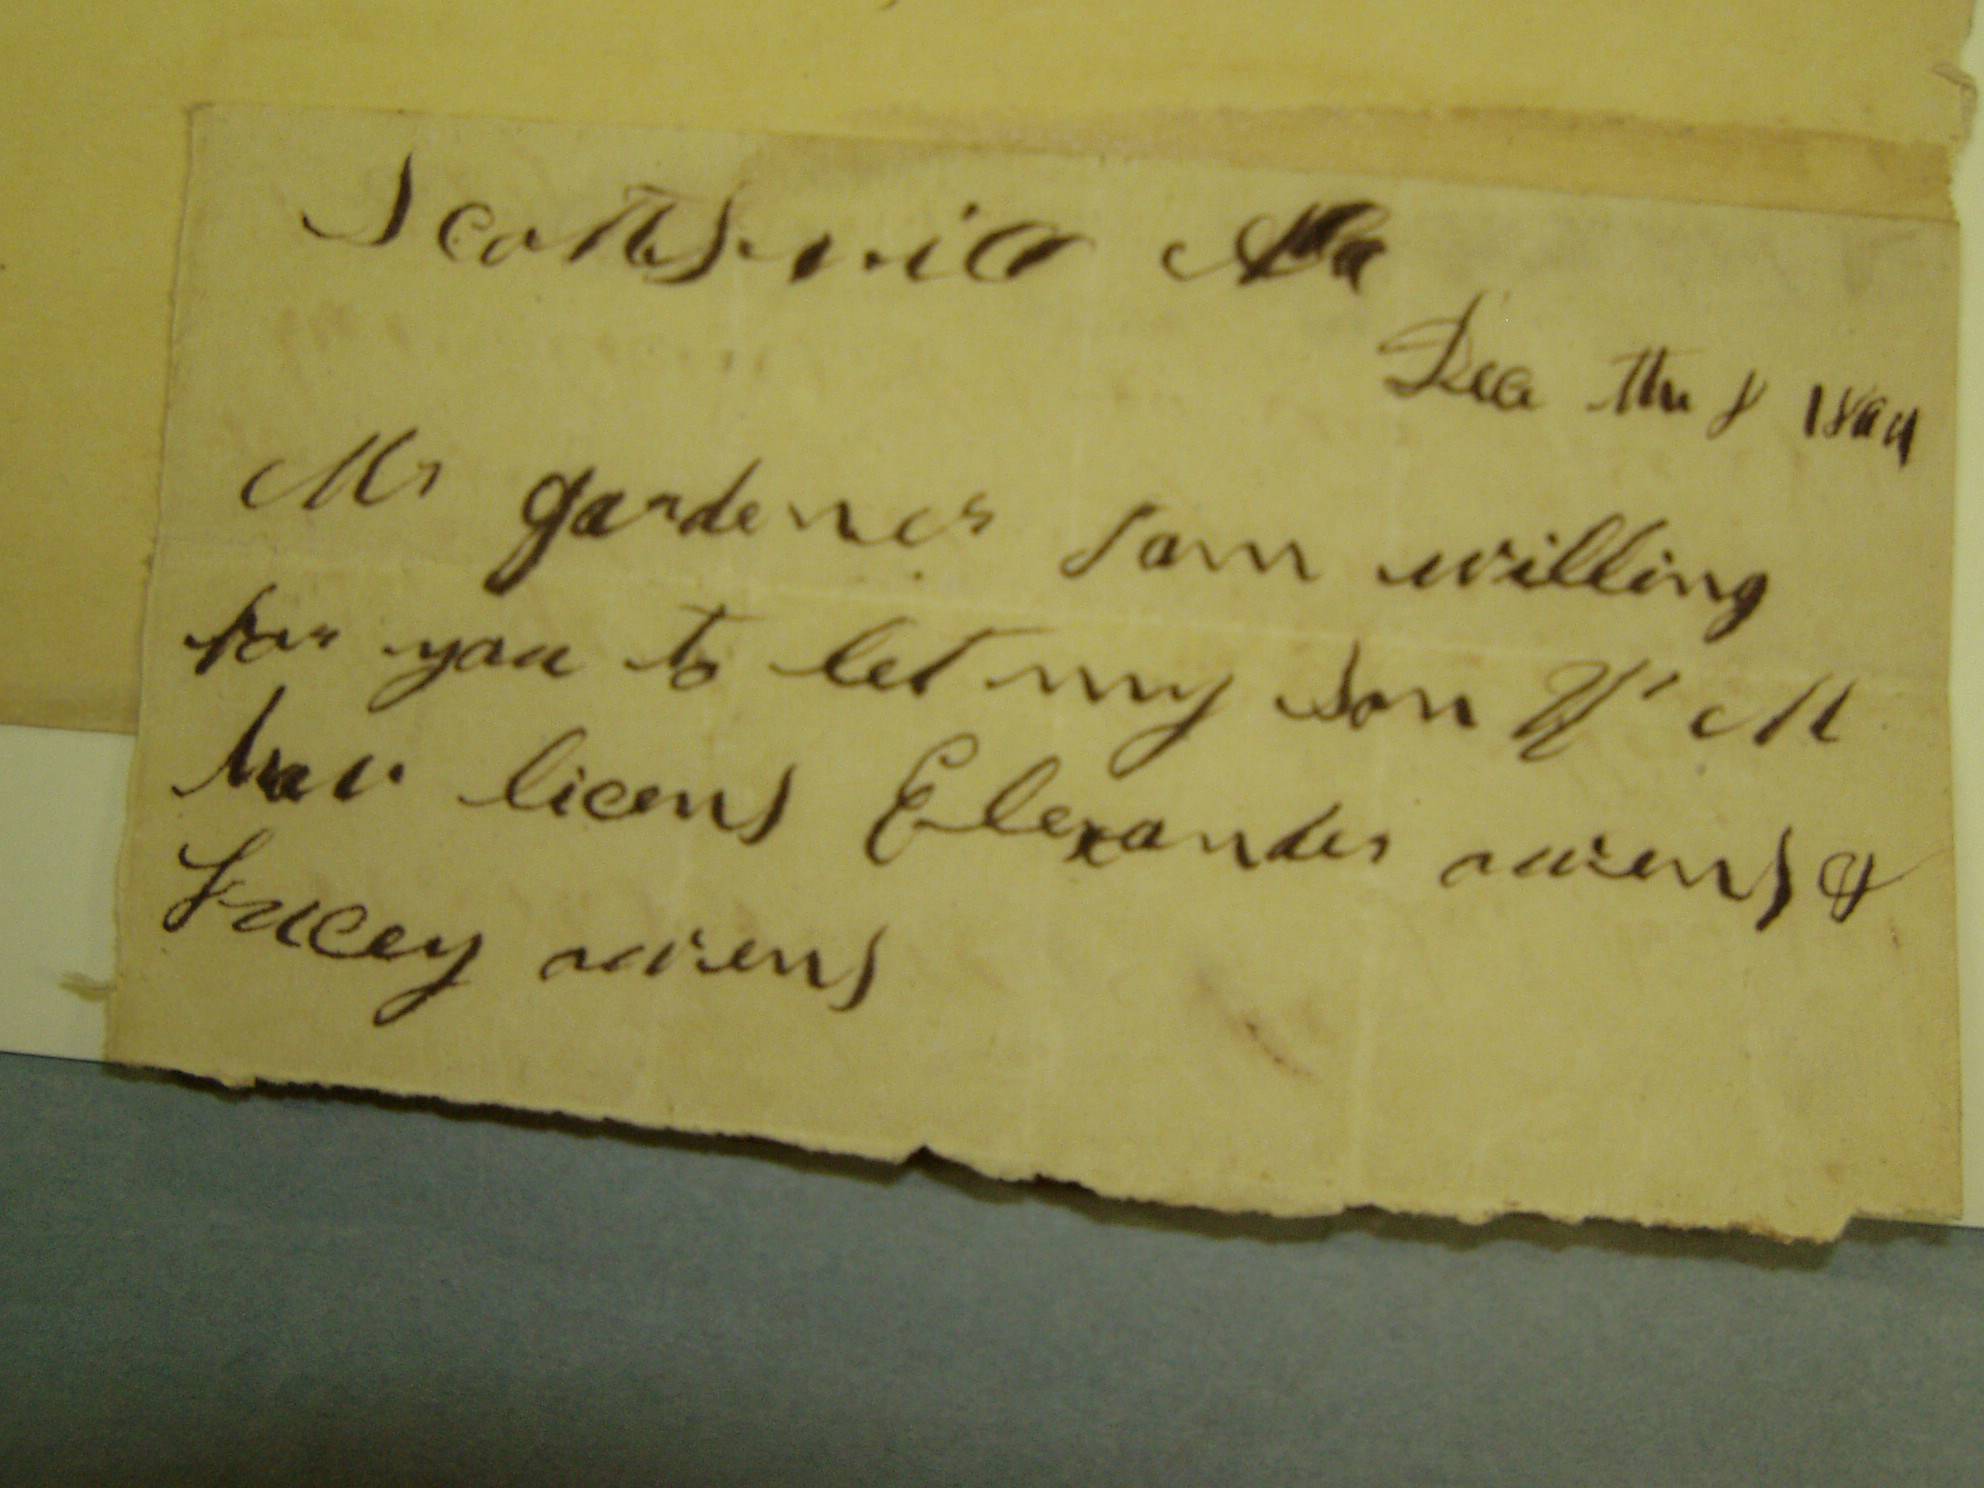 Scottsvill Ala
Dec the 8
Mr gardener I am willing
for you to let my son M
hav licens Elexander owens &
Lucey owens